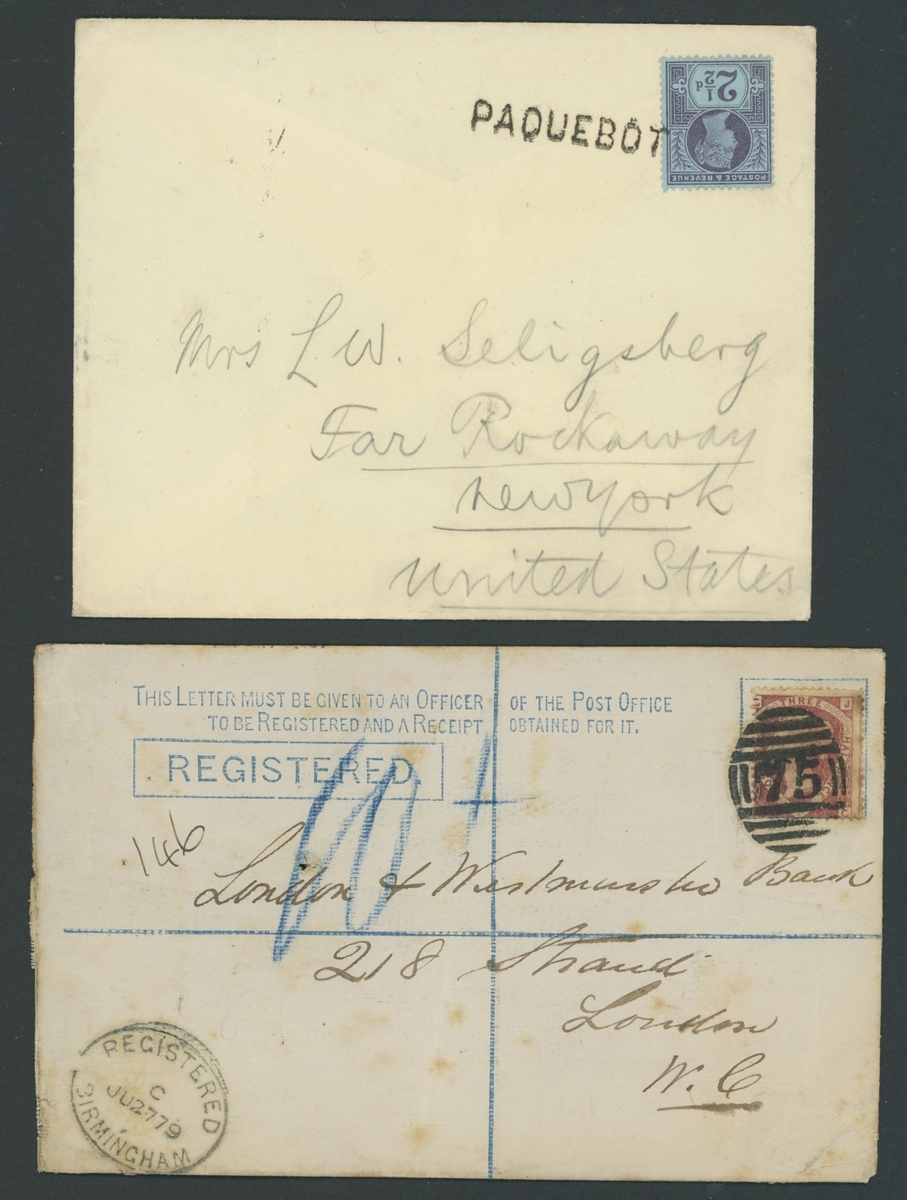 PAQUEBOT
2½d
POSTAGE & REVENUE
Mrs L. W. Seligsberg
Far Rockaway
New York
United States
THIS LETTER MUST BE GIVEN TO AN OFFICER OF THE POST OFFICE
TO BE REGISTERED AND A RECEIPT OBTAINED FOR IT.
REGISTERED.
THREE
HA
J
75
146
London & Westminster Bank
218 Strand
London
W. C
REGISTERED
C
JU27 79
BIRMINGHAM